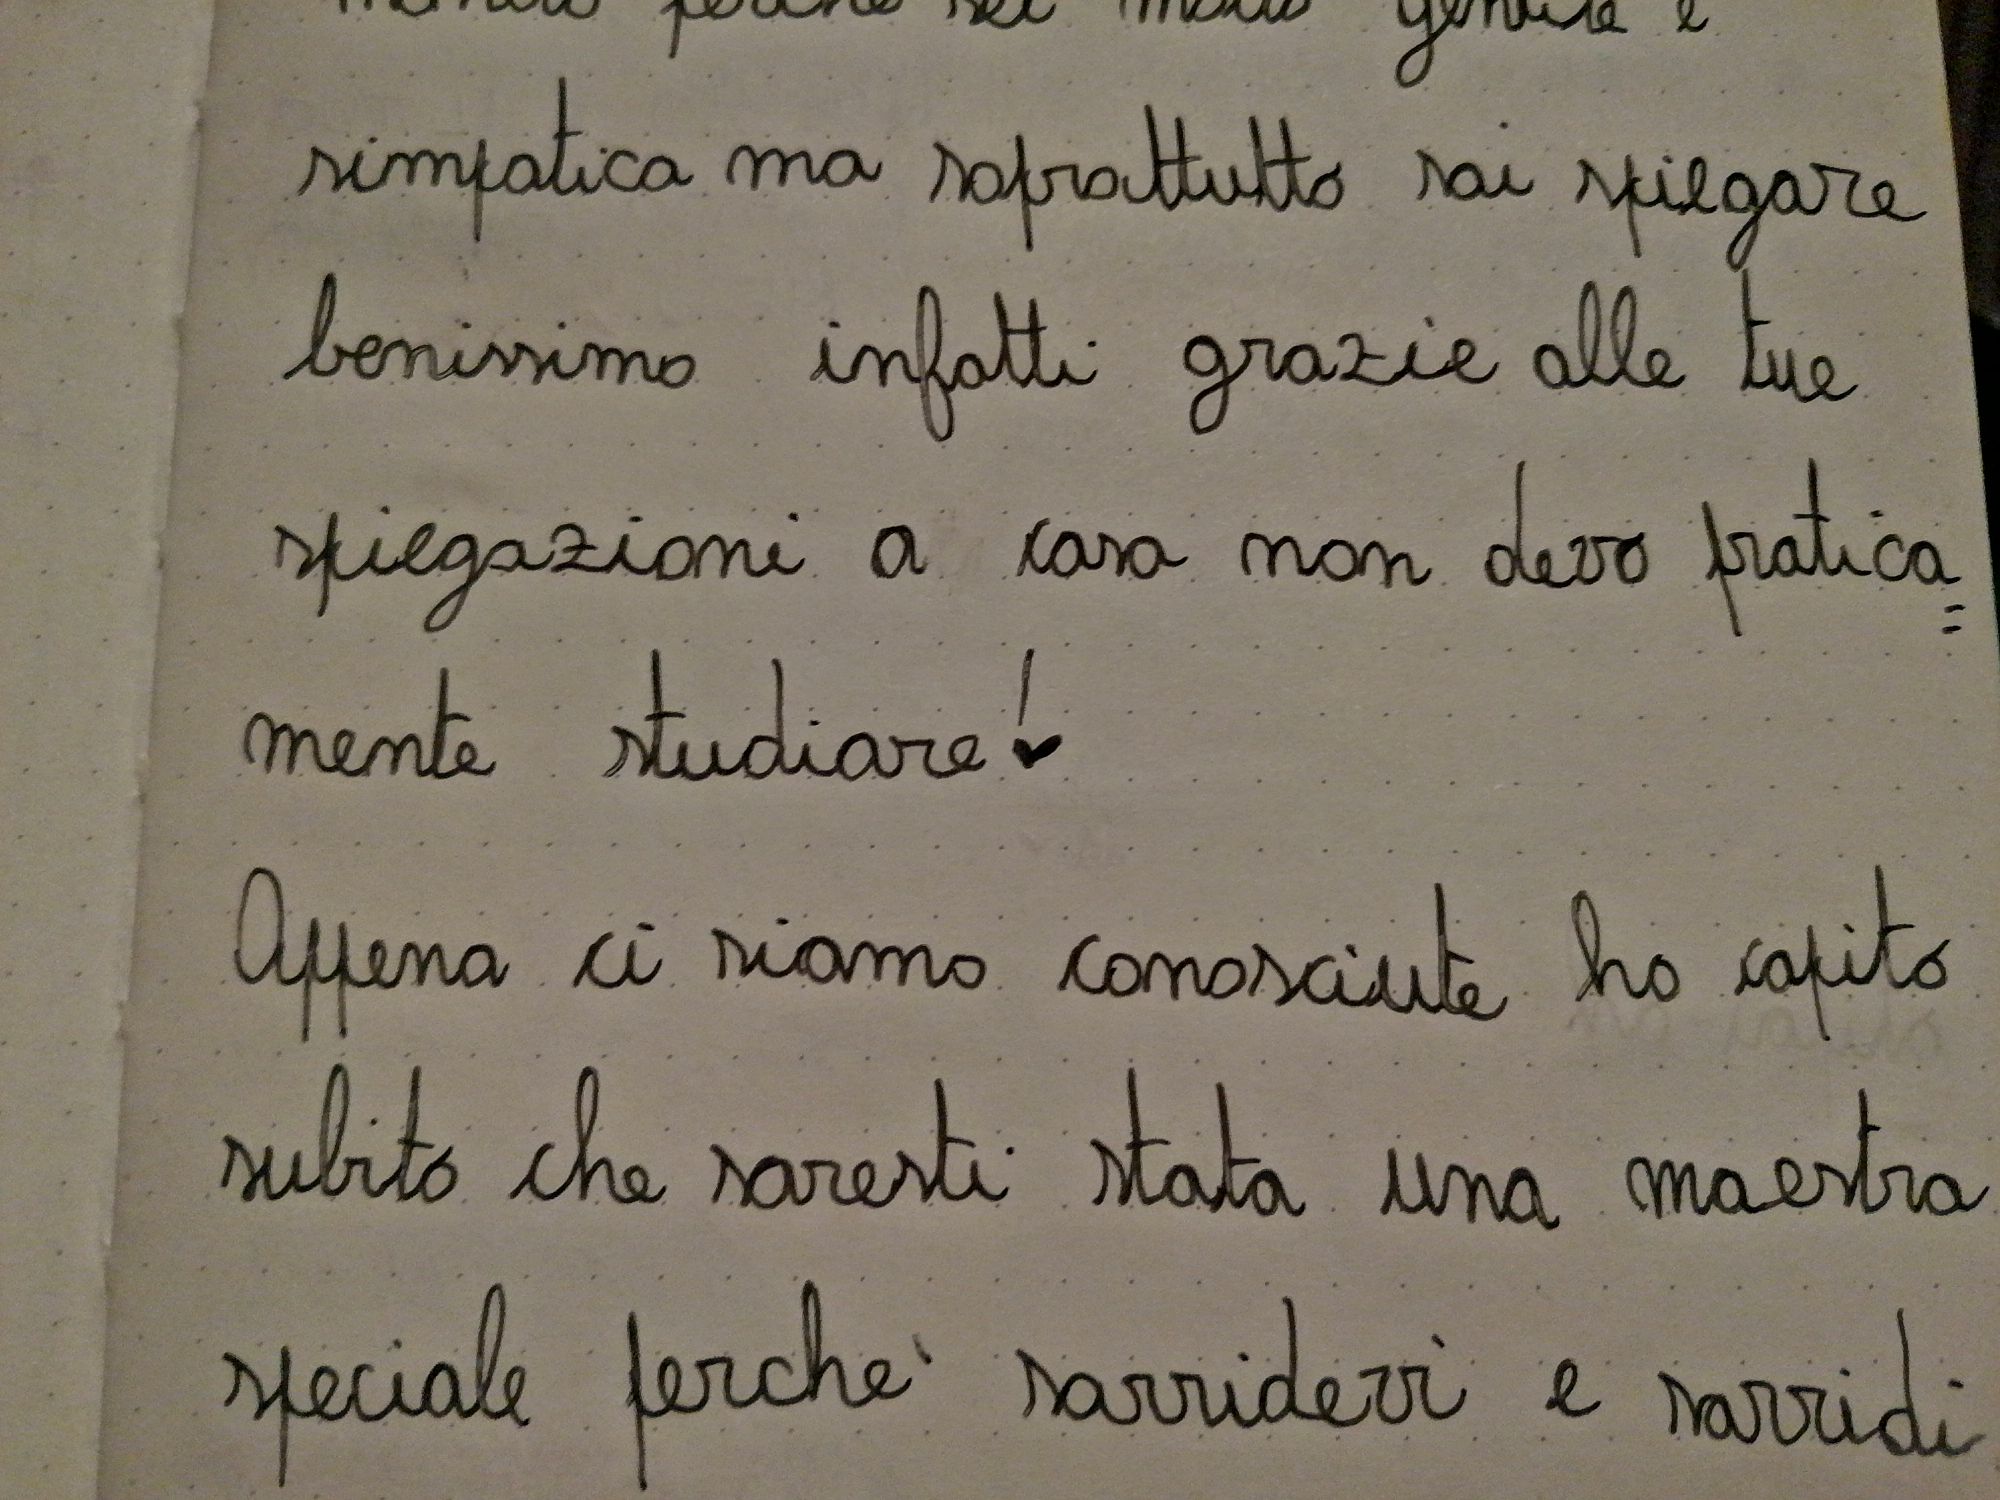 perché sei molto gentile e
simpatica ma soprattutto sai spiegare
benissimo infatti grazie alle tue
spiegazioni a casa non devo pratica=
mente studiare!
Appena ci siamo conosciute ho capito
subito che saresti stata una maestra
speciale perchè sorridevi e sorridi